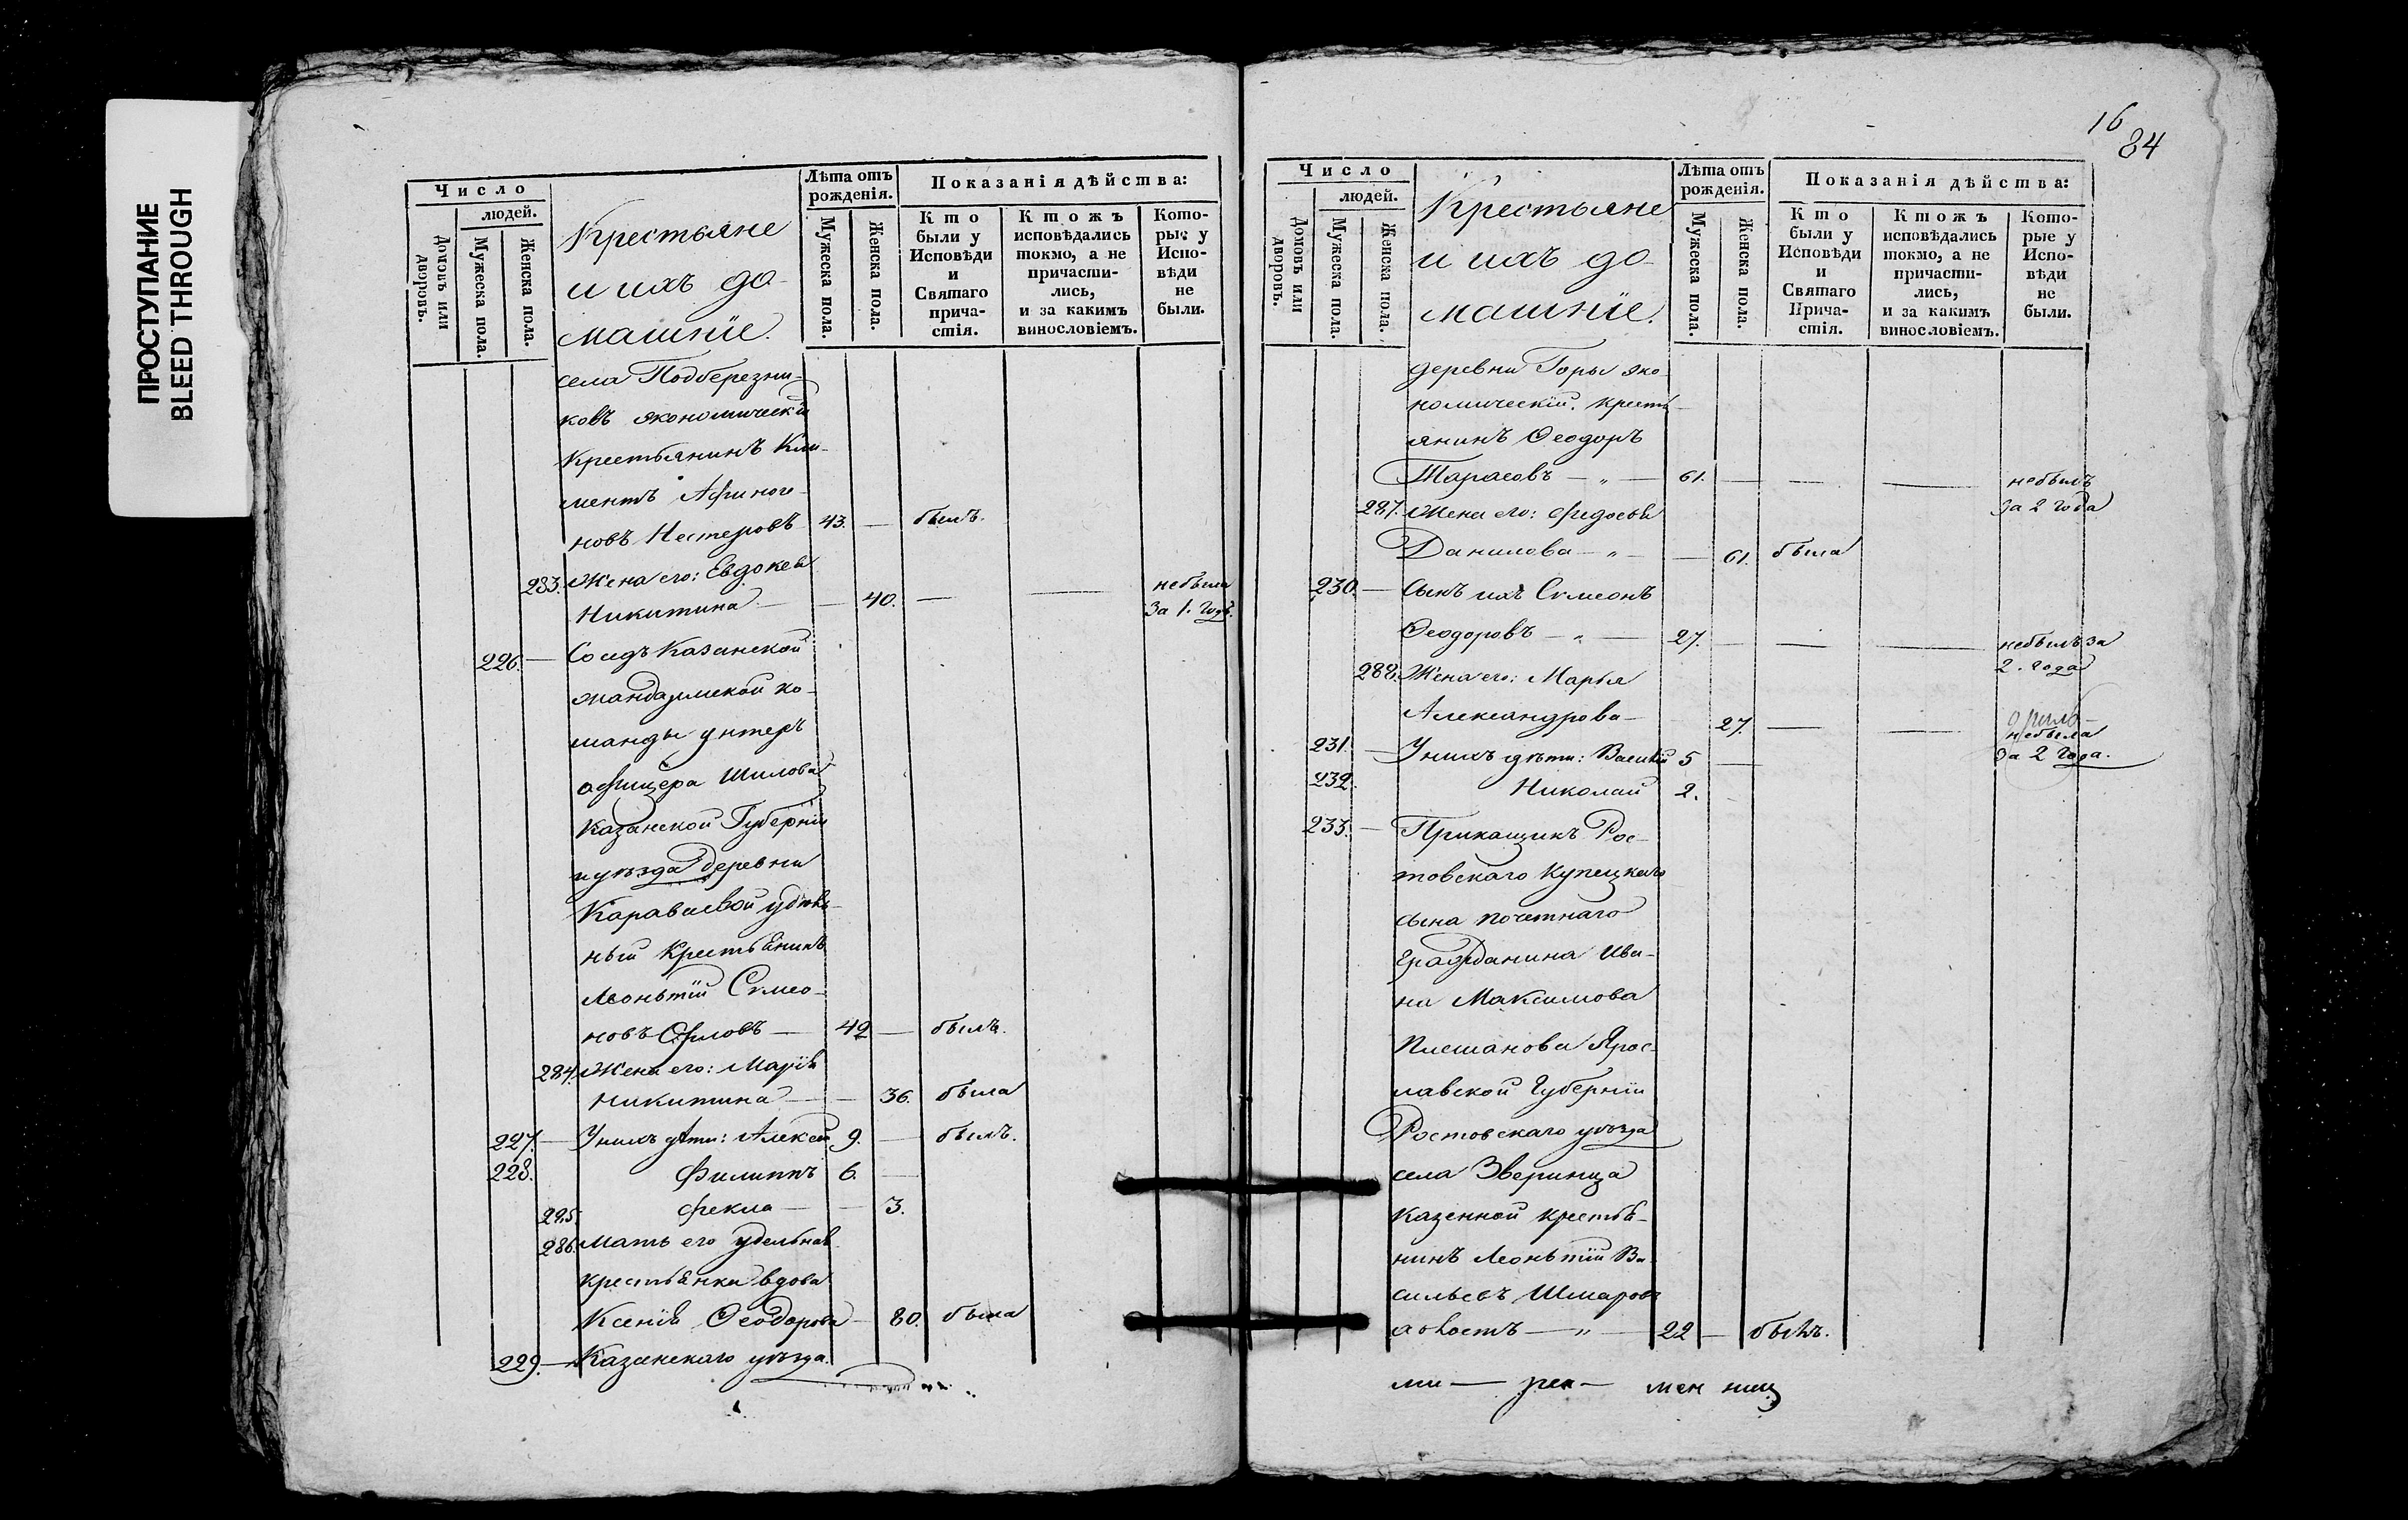 ПРОСТУПАНИЕ
BLEED THROUGH
Число
людей.
Домовъ или дворовъ.
Мужеска пола.
Женска пола.
Крестьяне
и ихъ до-
машніе.
Лѣта отъ
рожденія.
Мужеска пола.
Женска пола.
Показанія дѣйства:
Кто
были у
Исповѣди
и
Святаго
прича-
стія.
Ктожъ
исповѣдались
токмо, а не
причасти-
лись,
и за какимъ
винословіемъ.
Кото-
рые у
Испо-
вѣди
не
были.
села Подберезни-
ковъ экономическій
крестьянинъ Кли-
ментъ Афиноге-
новъ Нестеровъ 43. — былъ.
283. Жена его: Евдокея
Никитина — — 40. — — небыла
за 1. годъ.
226. — Солдъ Казанской
жандармской ко-
манды унтеръ
офицера Шилова
Казанской Губерніи
и уѣзда деревни
Караваевой удѣль-
ный крестьянинъ
Леонтій Симео-
новъ Орловъ — 42 — былъ.
284. Жена его: Марія
Никитина — — 36. была
227. — У нихъ дѣти: Алексей 9. — былъ.
228. Филиппъ 6. —
285. Фекла — — 3.
286. Мать его удельная
крестьянка вдова
Ксенія Ѳеодорова — 80. была
229. — Казанскаго уѣзда
16
84
Число
людей.
Домовъ или дворовъ.
Мужеска пола.
Женска пола.
Крестьяне
и ихъ до-
машніе.
Лѣта отъ
рожденія.
Мужеска пола.
Женска пола.
Показанія дѣйства:
Кто
были у
Исповѣди
и
Святаго
Прича-
стія.
Ктожъ
исповѣдались
токмо, а не
причасти-
лись,
и за какимъ
винословіемъ.
Кото-
рые у
Испо-
вѣди
не
были.
деревни Горы эко-
номическій кресть-
янинъ Ѳеодоръ
Тарасовъ — „ — 61. — — — небылъ
за 2 года
287. Жена его: Федосья
Данилова — „ — — 61. была
230. — Сынъ ихъ Симеонъ
Ѳеодоровъ — „ — 27. — — — небылъ за
2. года
288. Жена его: Марья
Александрова — 27. — — небыла
за 2 года.
231. — У нихъ дѣти: Василій 5 —
232. Николай 2.
233. — Прикащикъ Рос-
товскаго купецкаго
сына почетнаго
Гражданина Ива-
на Максимова
Плешанова Ярос-
лавской Губерніи
Ростовскаго уѣзда
села Зверинца
казенной крестья-
нинъ Леонтій Ва-
сильевъ Шмаровъ
холостъ — „ — 22 — былъ.